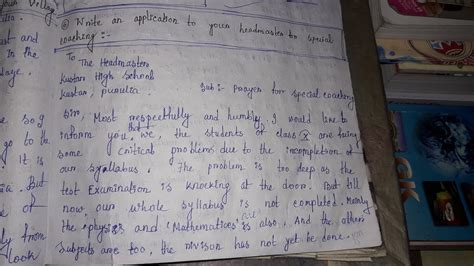 your Village
Write an application to youn headmaster for special
coaching :-
To
The Headmaster
Kustar High School
Kustar, purulia
Sub :- prayer for special coaching
Sir, Most respectfully and humbly I would love to
inform you, that we, the students of class X are facing
some critical problems due to the incompletion of
our syallabus. The problem is too deep as the
test Examination is knocking at the door. But till
now our whole syllabus is not completed. Mainly
the physics and 'Mathematices' is also. And the others
subjects are too, the revison has not yet be done.
ast and
In the
so g
go to the
It is
But
e of
ly from
look